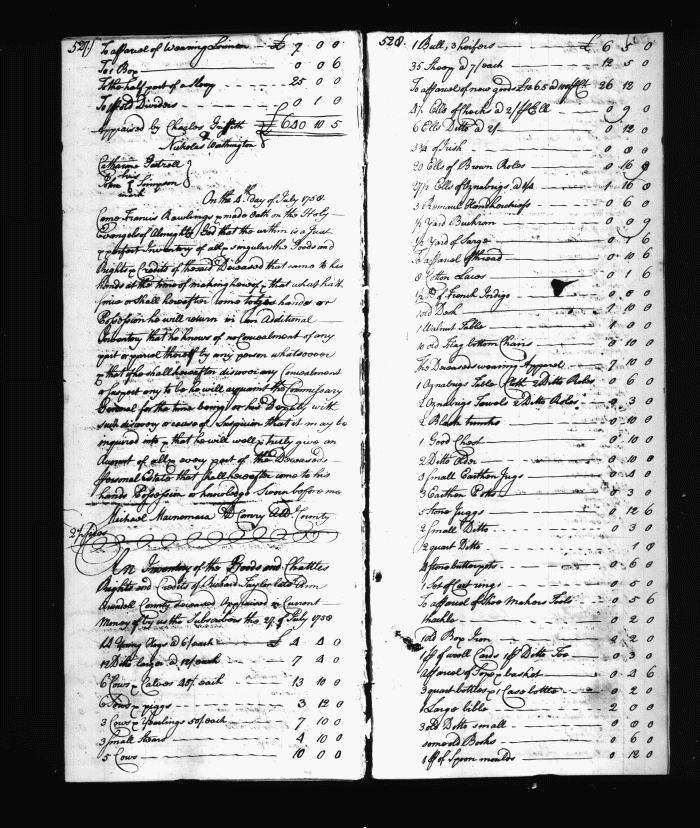 527
To a parcel of Wearing Linnen — £ 7 0 0
To 1 Box — 0 0 6
To the half part of a Sloop — 25 0 0
To old Dividers — 0 1 0
Appraised by Charles Griffith £ 640 10 5
Nicholas Watkington
Catharine
his
John Simpson
mark
On the 4th day of July 1758
Came Francis Rawlings & made oath on the Holy
Evangels of Almighty God that the within is a Just
& perfect Inventory of all & singular the Goods and
Rights & Credits of the said Deceased that came to his
hands at the time of making hereof & that what hath
since or shall hereafter come to his hands or
Possession he will return in an Additional
Inventory that he knows of no Concealment of any
part or parcel thereof by any person whatsoever
& that if he shall hereafter discover any Concealment
or suspect any to be he will acquaint the Commissary
General for the time being or his Deputy with
such discovery or cause of Suspicion that it may be
inquired into & that he will well & truly give an
Account of all & every part of the Deceaseds
personal Estate that shall hereafter come to his
hands Possession or knowledge Sworn before me
Michael Macnemara D Comry AA County
2 Sides
An Inventory of the Goods and Chattles
Rights and Credits of Richard Taylor late Ann
Arundel County deceased Appraised in Current
Money by us the Subscribers the 27 of July 1758
14 Young Hogs a 6/ each — £ 4 4 0
12 Ditto larger a 12/ each — 7 4 0
6 Cows & Calves 45/ each — 13 10 0
6 Sows & piggs — 3 12 0
3 Cows & Yearlings 50/ each — 7 10 0
3 small Steers — 4 10 0
5 Cows — 10 0 0
528
1 Bull, 3 heifers — £ 6 5 0
35 Sheep a 7/ each — 12 5 0
To a parcel of new goods — 26 12 0
Ells of — a 2/ — 0 9 0
6 Ells Ditto a 2/ — 0 12 0
3 3/4 of Irish — 0 8 0
20 Ells of Brown Roles — 0 16 8
27 1/2 Ells of Oznabrigs — 1 16 8
3 Romall Handkerchiefs — 0 6 0
1/2 Yard Buckram — 0 0 9
1/2 Yard of Serge — 0 1 6
To a parcel of thread — 0 10 6
8 Cotton Laces — 0 1 6
of French Indigo
1 old Desk — 10 0
1 Walnut Table — 1 0 0
10 old Flag bottom Chairs — 10 0
The Deceaseds wearing Apparel — 10 0
1 Oznabrigs Table Cloth 2 Ditto Roles — 0 6 0
2 Oznabrigs Towels 2 Ditto Roles — 3 0
2 Black trunks — 0 10 0
1 Good Chest — 0 10 0
2 Ditto older — 0 10 0
3 small Earthen Jugs — 0 4 0
3 Earthen Pots — 0 3 0
5 Stone Juggs — 0 12 6
2 Small Ditto — 0 3 0
2 quart Ditto — 1 8
Stone butterpots — 0 6 0
1 Set of Cast rings — 0 5 0
To a parcel of Shoe Makers Tools — 0 5 6
hackle — 0 2 0
1 old Box Iron — 2 0
1 pr of wooll Cards 1 pr Ditto Tow — 0 3 0
A parcel of Soap & basket — 0 4 6
3 quart bottles & 1 Case bottle — 0 2 0
1 Large bible — 2 0 0
3 old Ditto small — 0 8 0
some old Books — 0 6 0
1 pr of Spoon moulds — 0 12 0